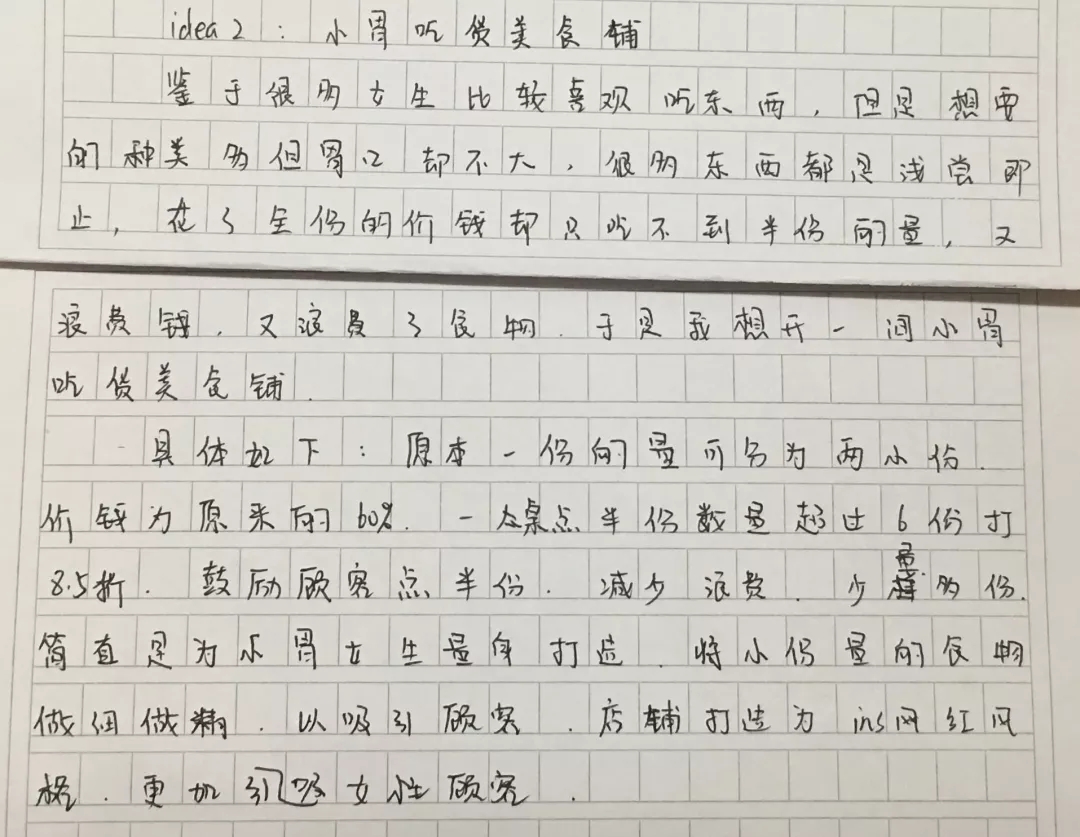 idea 2：小胃吃货美食铺
鉴于很多女生比较喜欢吃东西，但是想要
的种类多但胃口却不大，很多东西都是浅尝即
止，花了全份的价钱却只吃不到半份的量，又
浪费钱，又浪费了食物．于是我想开一间小胃
吃货美食铺．
具体如下：原本一份的量可分为两小份．
价钱为原来的60%．一大桌点半份数量超过6份打
8.5折．鼓励顾客点半份．减少浪费．少量多份．
简直是为小胃女生量身打造．将小份量的食物
做细做精．以吸引顾客．店铺打造为ins网红风
格．更加引吸女性顾客．